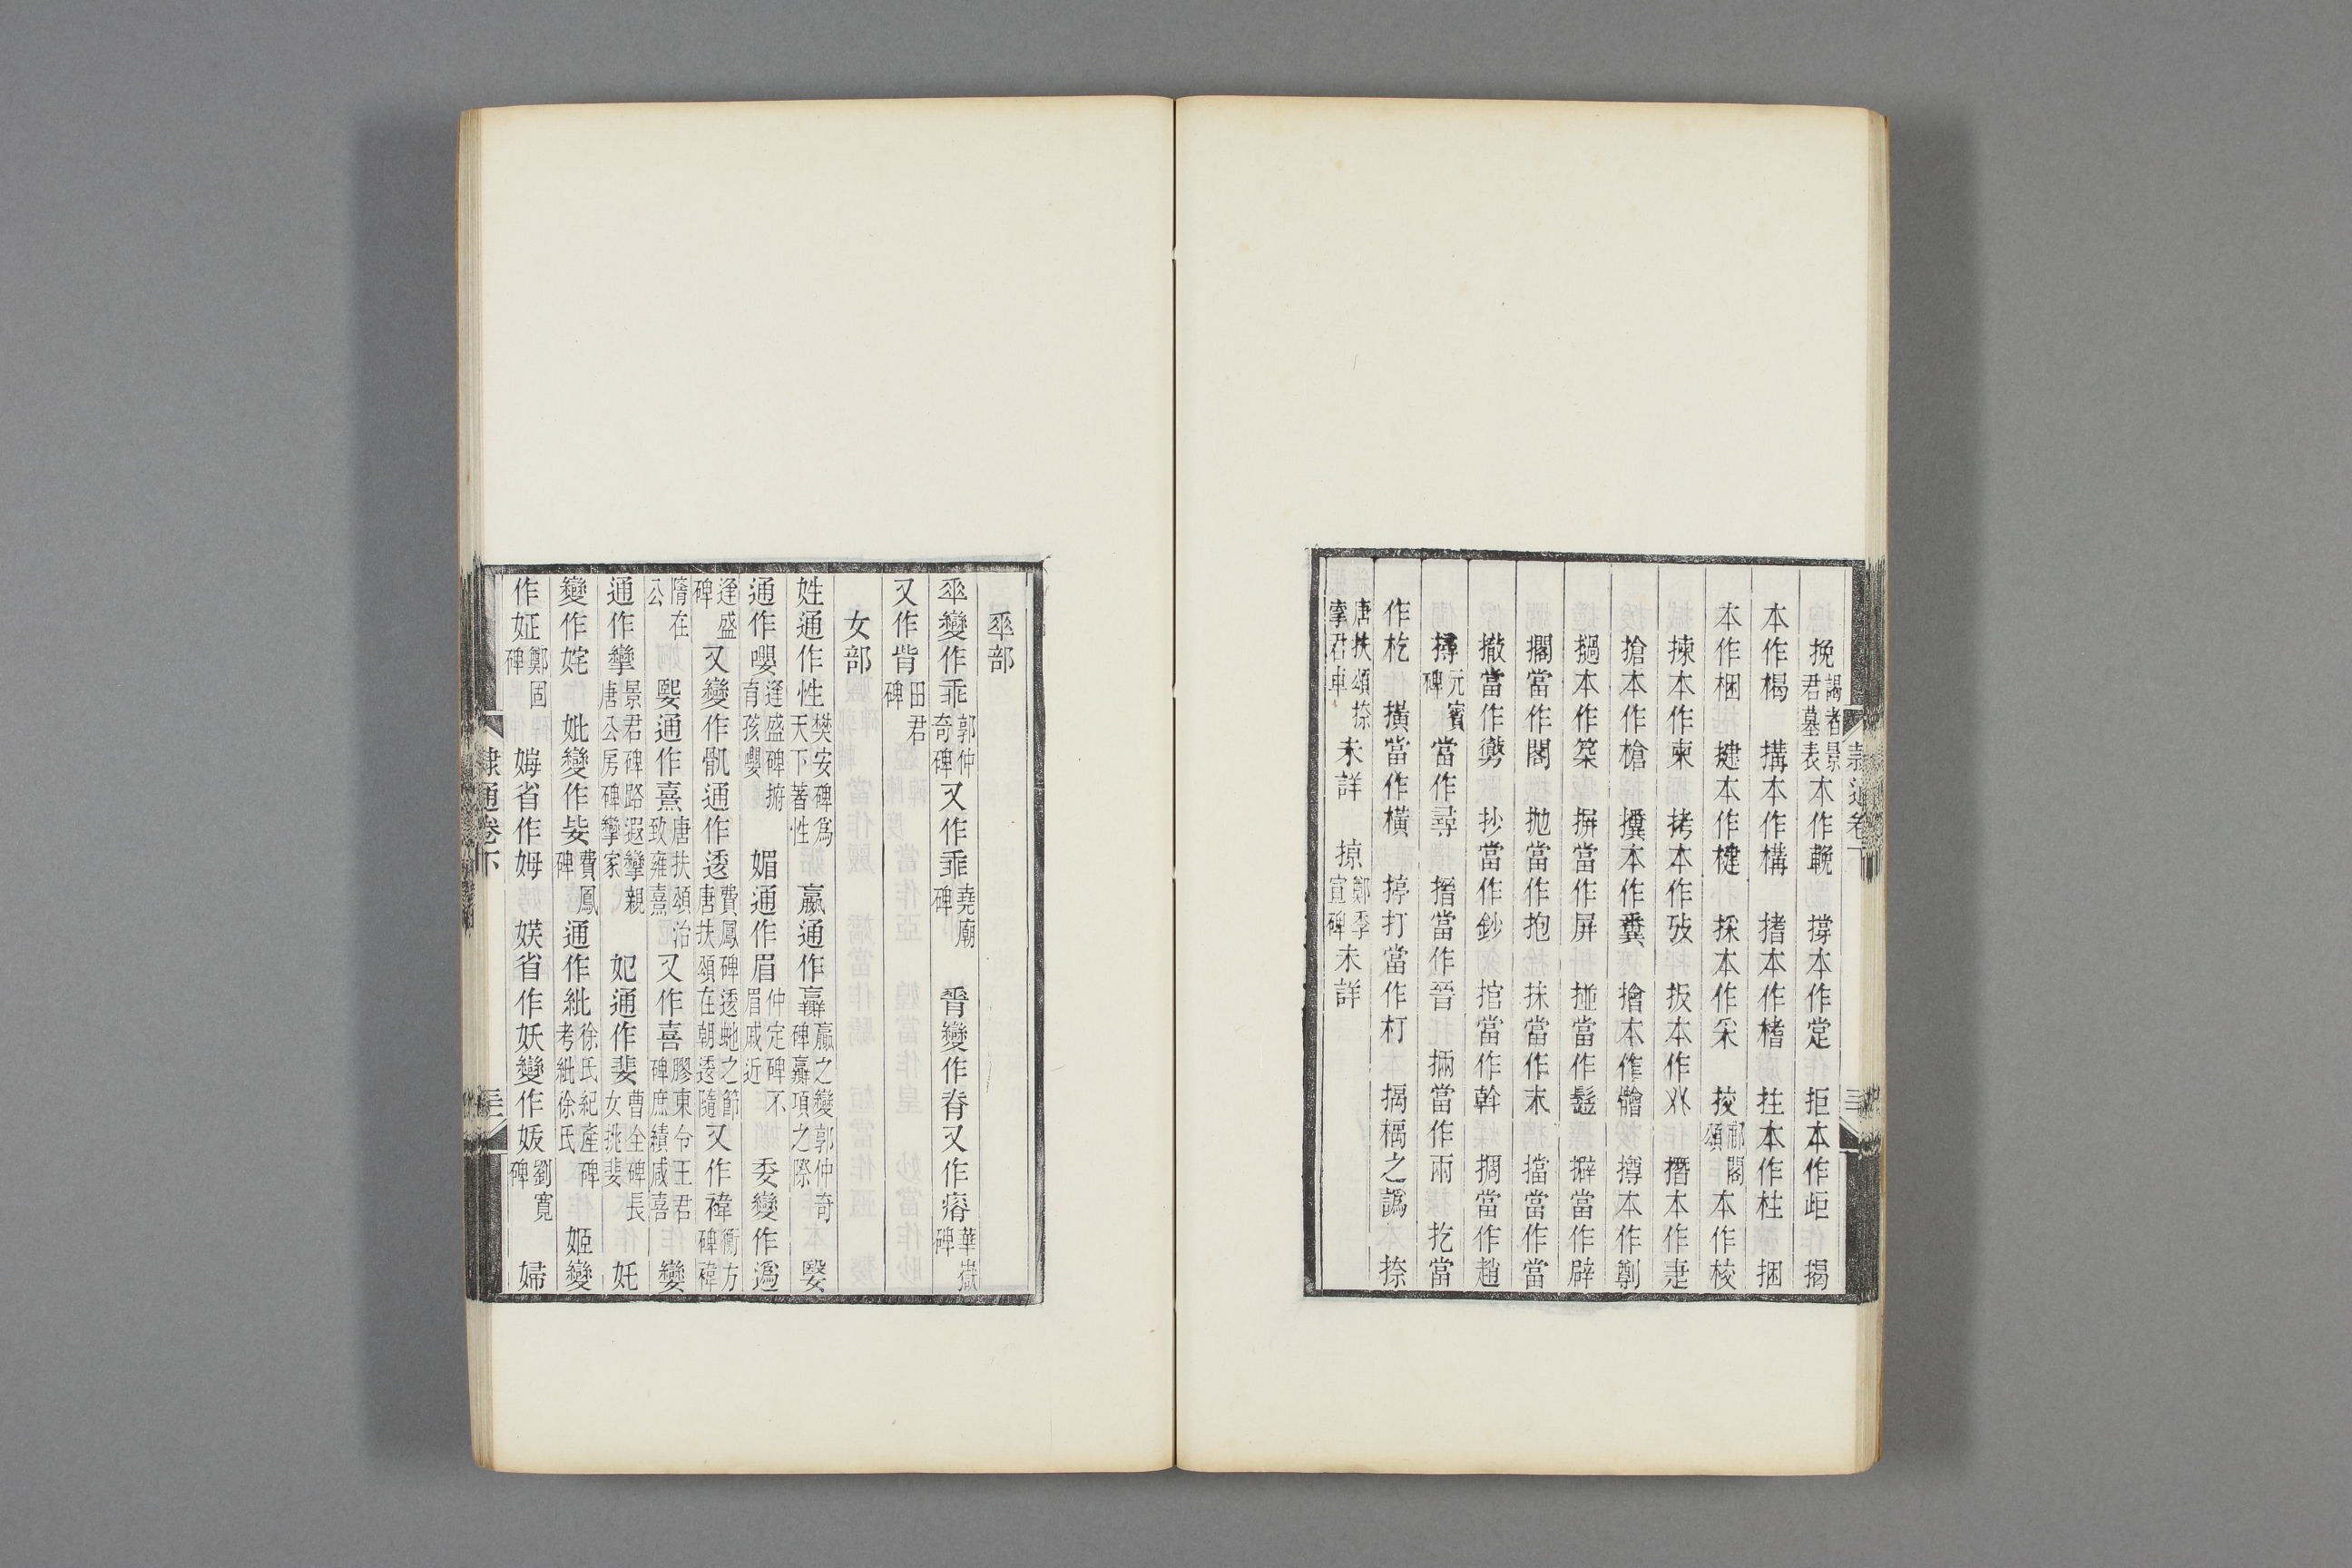 挽謁者景君墓表本作輓　撐本作定　拒本作歫　揭
本作楬　搆本作構　揸本作楮　拄本作柱　捆
本作梱　揵本作楗　採本作采　挍郙閣頌本作校
揀本作柬　拷本作攷　扳本作𠬜　揩本作疌
搶本作槍　擥本作糞　擔本作儋　撙本作剸
撾本作築　摒當作屏　掽當作髼　擗當作辟
擱當作閣　拋當作抱　抹當作末　擋當作當
撒當作勶　抄當作鈔　捾當作斡　搊當作趙
撏元賓碑當作尋　搢當作晉　掚當作兩　扢當
作杚　撗當作橫　揨打當作朾　搹槅之譌　捺
唐扶頌捺李君車未詳　掠鄭季宣碑未詳
隸通卷下
𠦬部
𠦬變作乖郭仲奇碑又作乖堯廟碑　脊變作脊又作瘠華嶽碑
又作背田君碑
女部
姓通作性樊安碑爲天下著性　嬴通作䇔嬴之變郭仲奇碑䇔項之際　嫛
通作嚶逢盛碑掤育孩嚶　媚通作眉仲定碑不眉戚近　委變作爲
逢盛碑又變作骪通作逶費鳳碑逶虵之節唐扶頌在朝逶隨又作褘衡方碑褘
隋在公　媐通作熹唐扶頌治致雍熹又作喜膠東令王君碑庶績咸喜變
通作攣景君碑路遐攣親唐公房碑攣家　妃通作斐曹全碑長女挑斐　奼
變作姹　妣變作娤費鳳碑通作紕徐氏紀產碑考紕徐氏　姬變
作姃鄭固碑　娒省作姆　媄省作妖變作妭劉寬碑　婦
隸通卷下　三